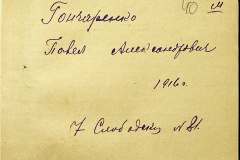 Гончаренко 40 м
Павел Александрович
1916 г.
7 Слободская N 81.